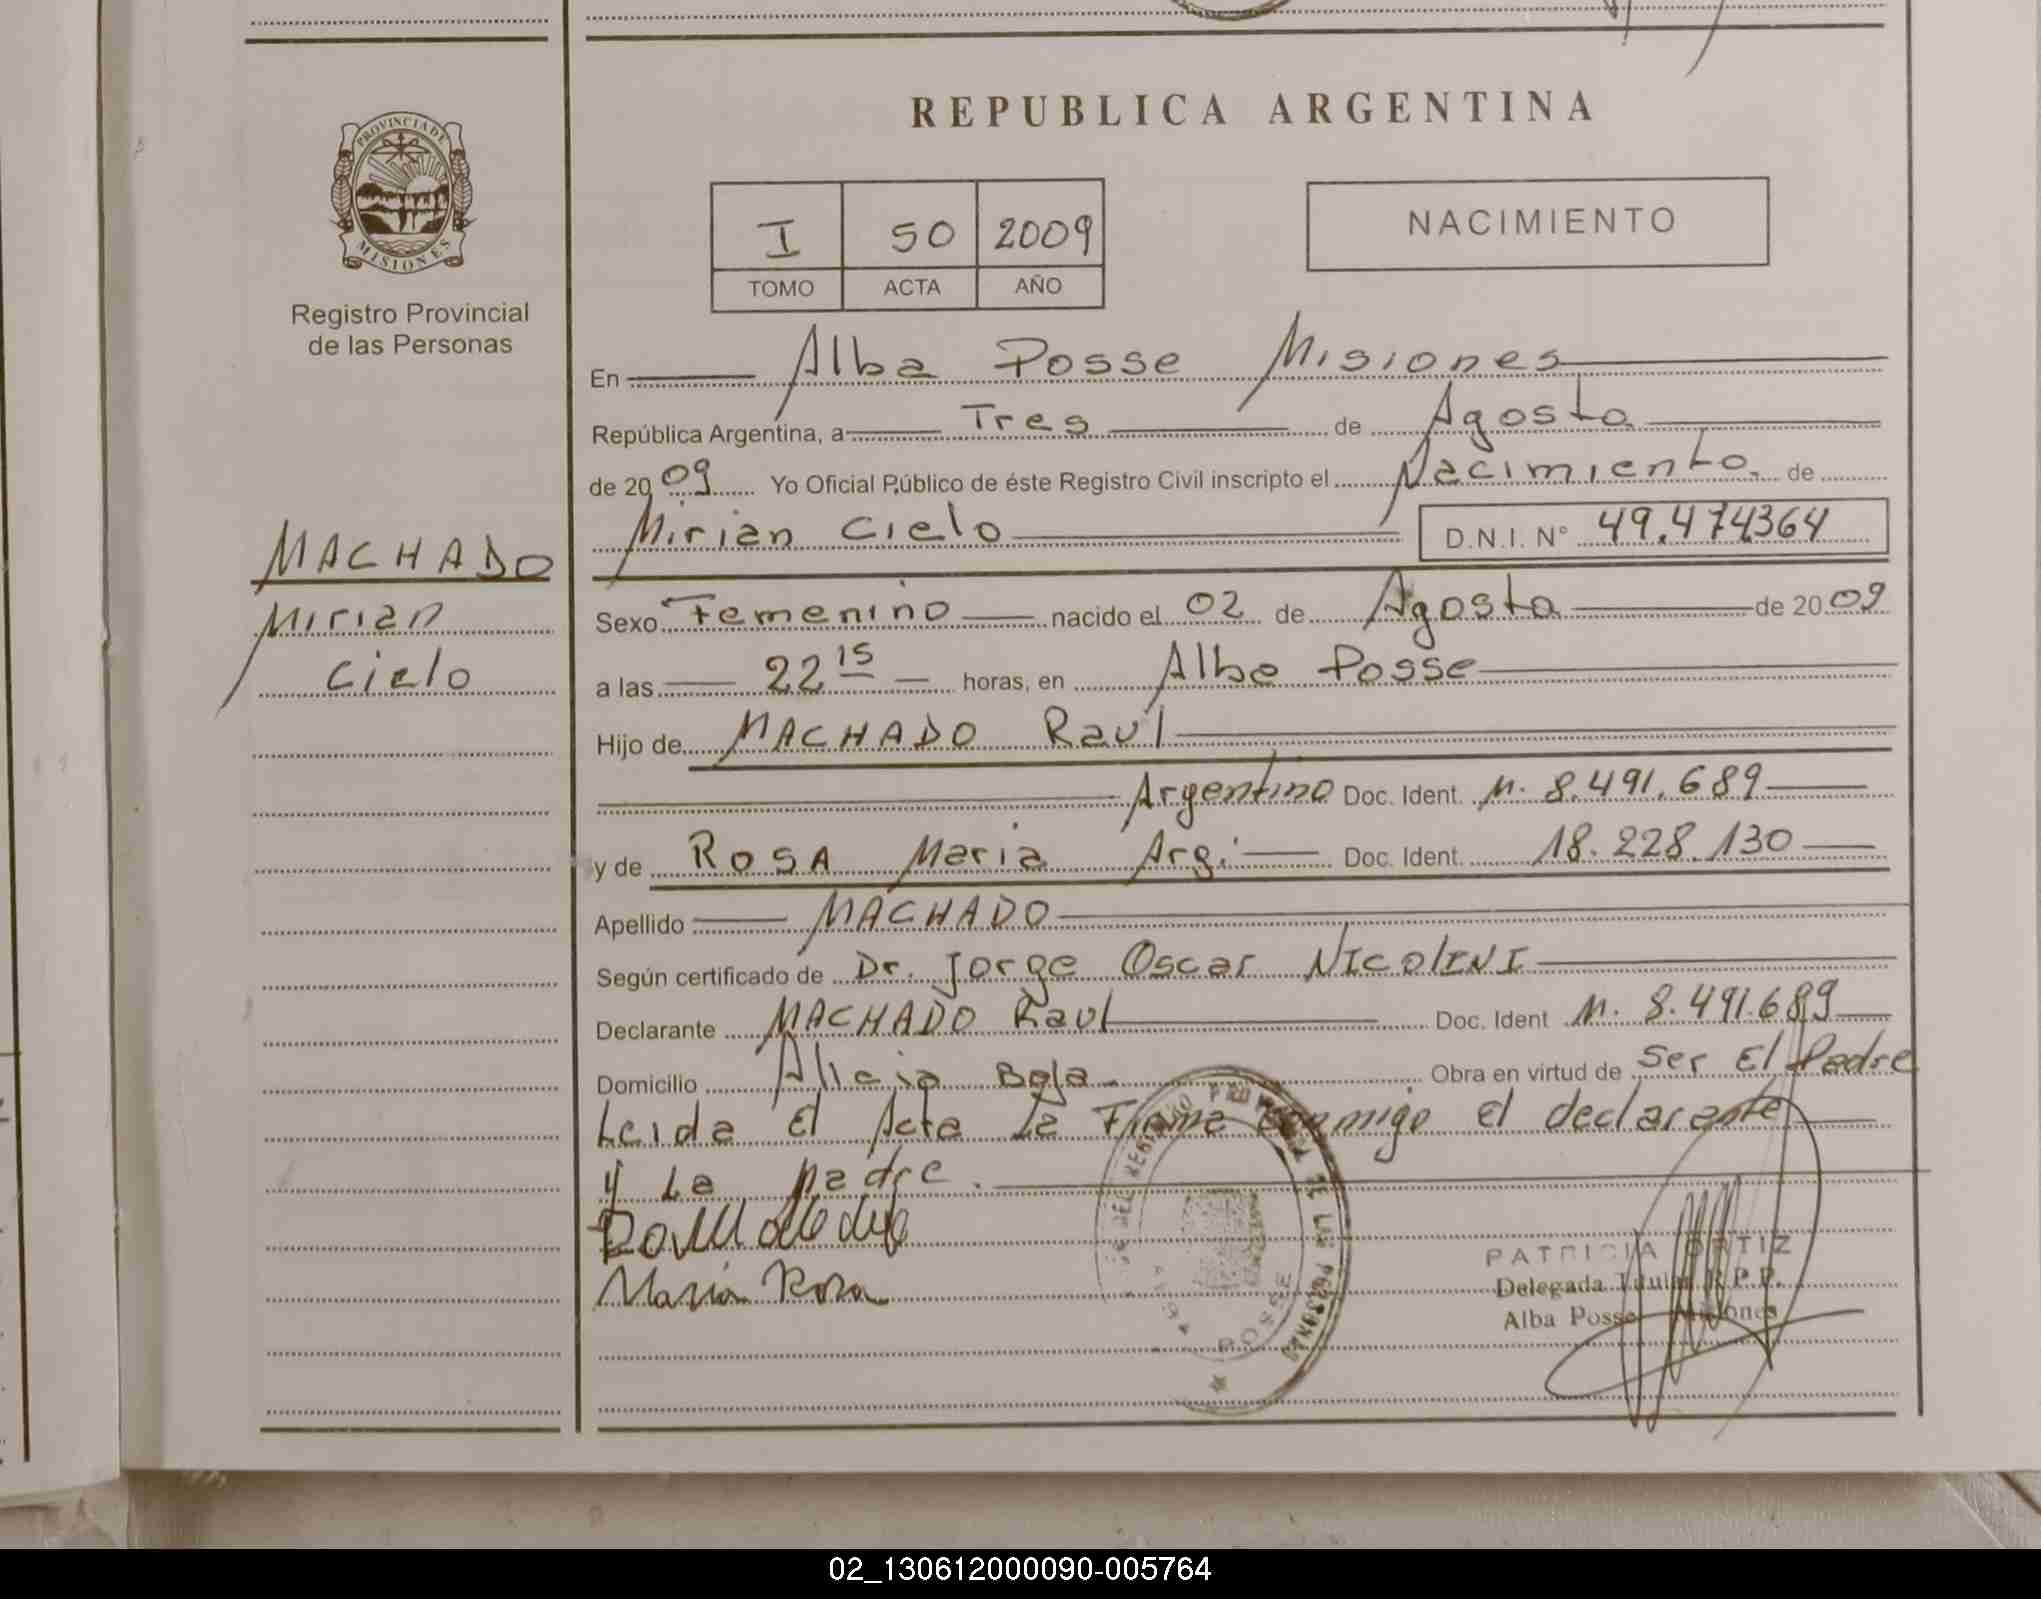 PROVINCIA DE
MISIONES
Registro Provincial
de las Personas
MACHADO
Mirian
Cielo
REPUBLICA ARGENTINA
I 50 2009
TOMO ACTA AÑO
NACIMIENTO
En Alba Posse Misiones
República Argentina, a Tres de Agosto
de 2009 Yo Oficial Público de éste Registro Civil inscripto el Nacimiento de
Mirian Cielo D.N.I. Nº 49.474364
Sexo Femenino nacido el 02 de Agosto de 2009
a las 22 15 horas, en Alba Posse
Hijo de MACHADO Raúl
Argentino Doc. Ident. M. 8.491.689
y de ROSA Maria Arg. Doc. Ident. 18.228.130
Apellido MACHADO
Según certificado de Dr. Jorge Oscar NICOLINI
Declarante MACHADO Raul Doc. Ident M. 8.491.689
Domicilio Alicia Baja. Obra en virtud de Ser El Padre
Leida El Acta La Firma conmigo El declarante
y La madre.
Maria Rosa
PATRICIA ORTIZ
Delegada Titular R.P.P.
Alba Posse Misiones
POSSE
02_130612000090-005764